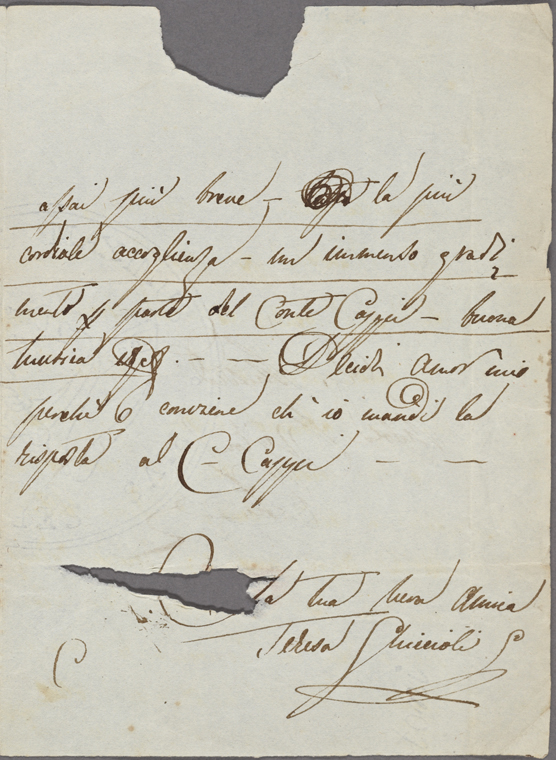 assai più breve - la più
cordiale accoglienza - un immenso gradi
mento p parte del Conte Cappi - buona
musica - - Decidi Amor mio
perchè conviene ch'io mandi la
risposta al C - Cappi - -
la tua vera Amica
Teresa Guiccioli G